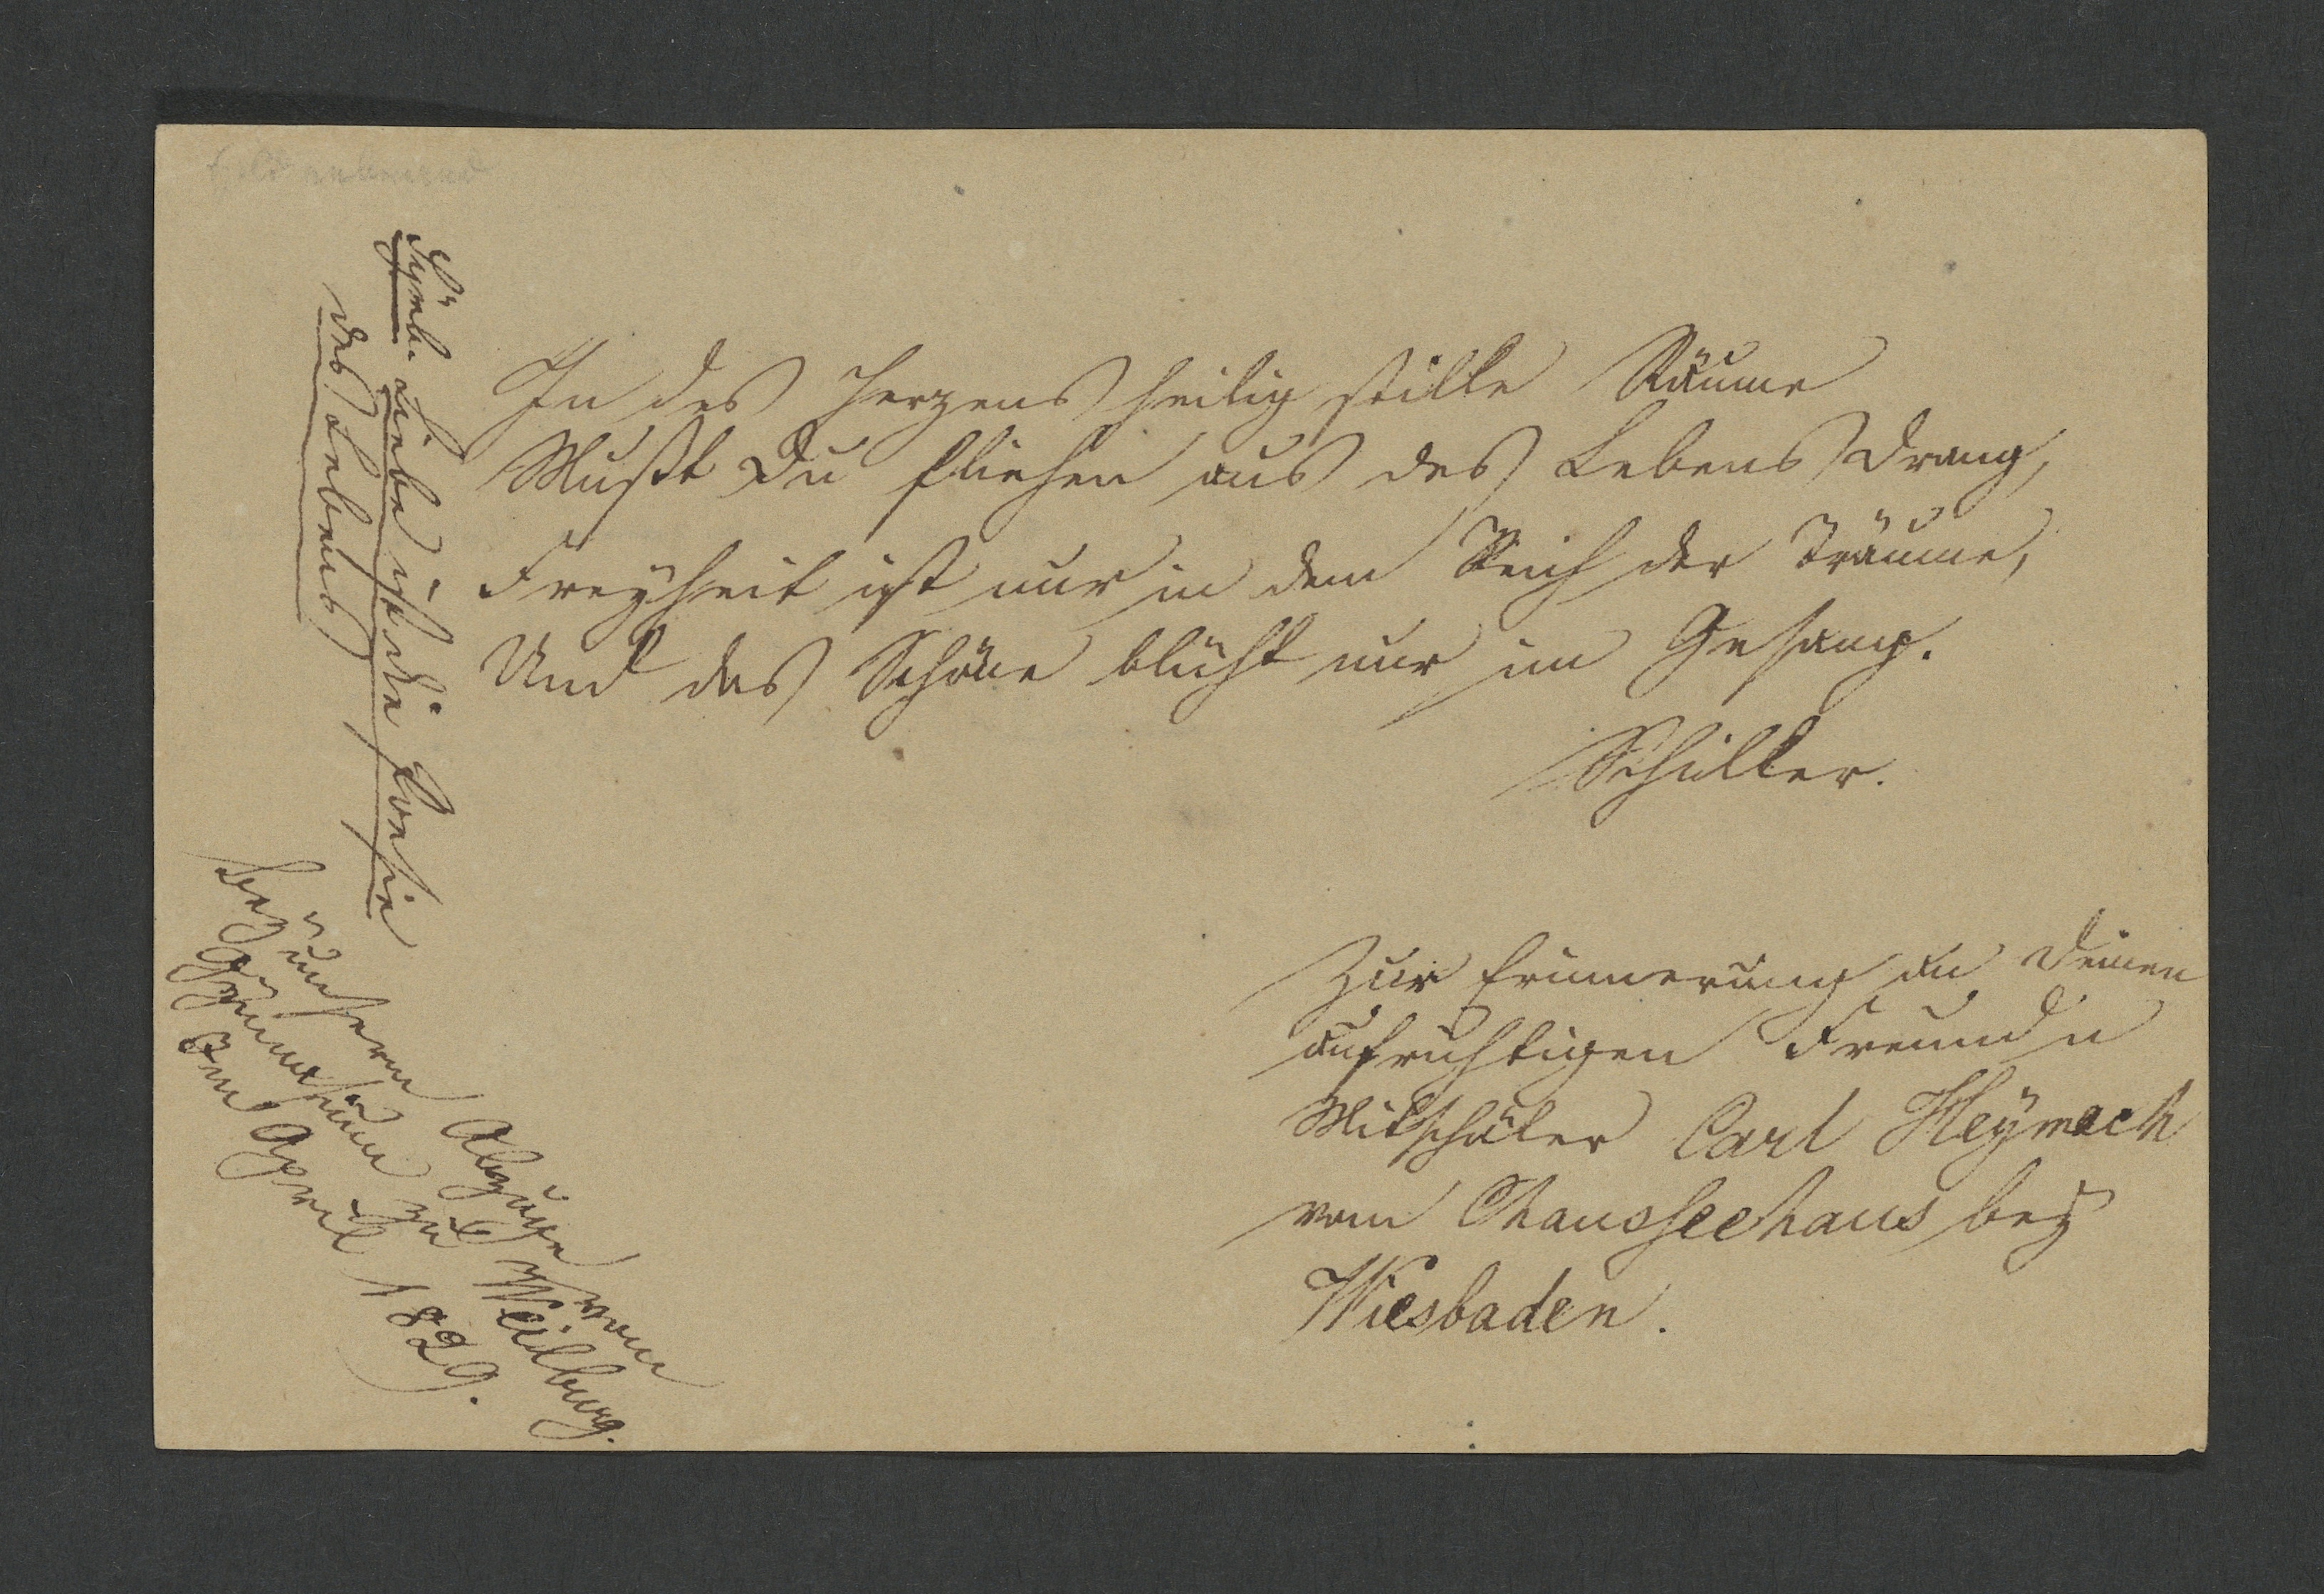 In des Herzens heilig stille Räume
Mußt Du fliehen aus des Lebens Drang,
Freyheit ist nur in dem Reich der Träume,
Und das Schöne blüht nur im Gesang.
Schiller.
Symb. Liebe ist die Poesie
des Lebens
Zur Erinnerung an Deinen
aufrichtigen Freund u
Mitschüler Carl Heymach
vom Chausseehaus bey
Wiesbaden.
Bey unserm Abzuge vom
Gymnasium zu Weilburg.
Im April 1829.